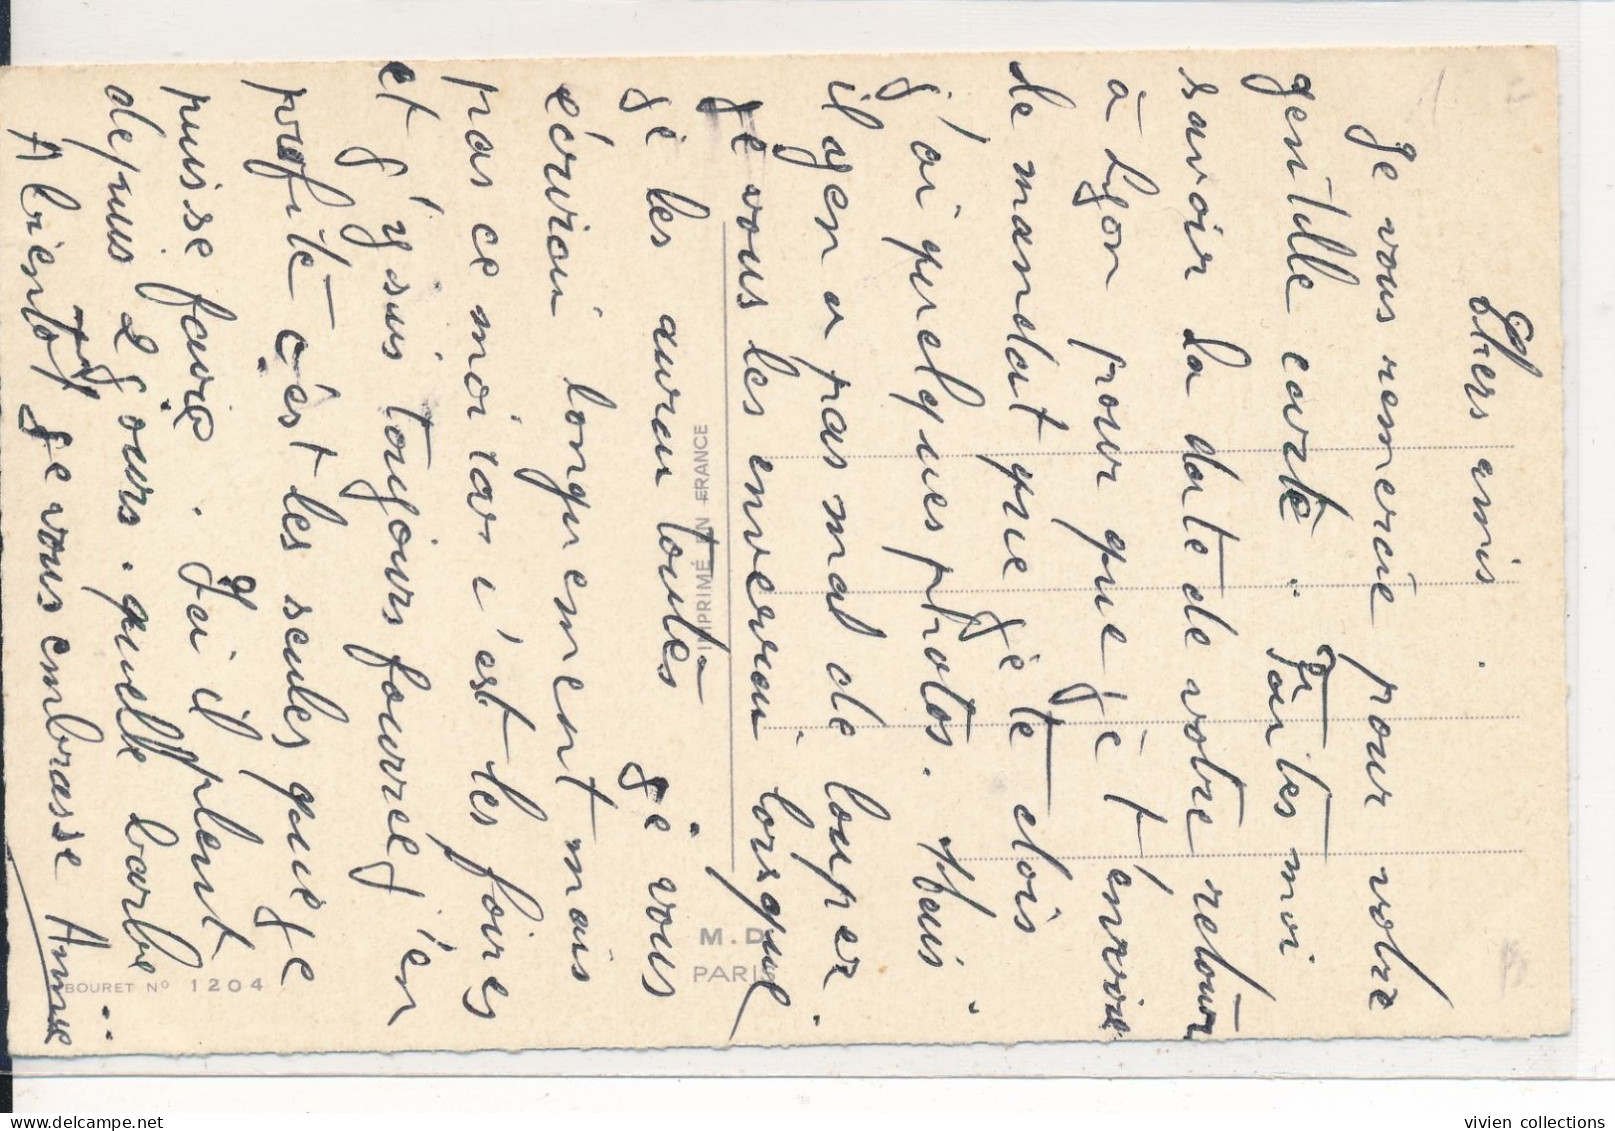 Chers amis.
Je vous remercie pour votre
gentille carte. Faites moi
savoir la date de votre retour
à Lyon pour que je t'envoie
le mandat que je te dois
j'ai quelques photos. Mais
il y en a pas mal de louper.
Je vous les enverrai lorsque
je les aurai toutes je vous
écrirai longuement mais
pas ce mois car c'est les foires
et j'y suis toujours fourrée j'en
profite c'est les seules que je
puisse faire. Ici il pleut
depuis 2 jours. quelle barbe
A bientôt je vous embrasse Annie
IMPRIMÉ EN FRANCE
M.D.
PARIS
BOURET N° 1204
vivien collections